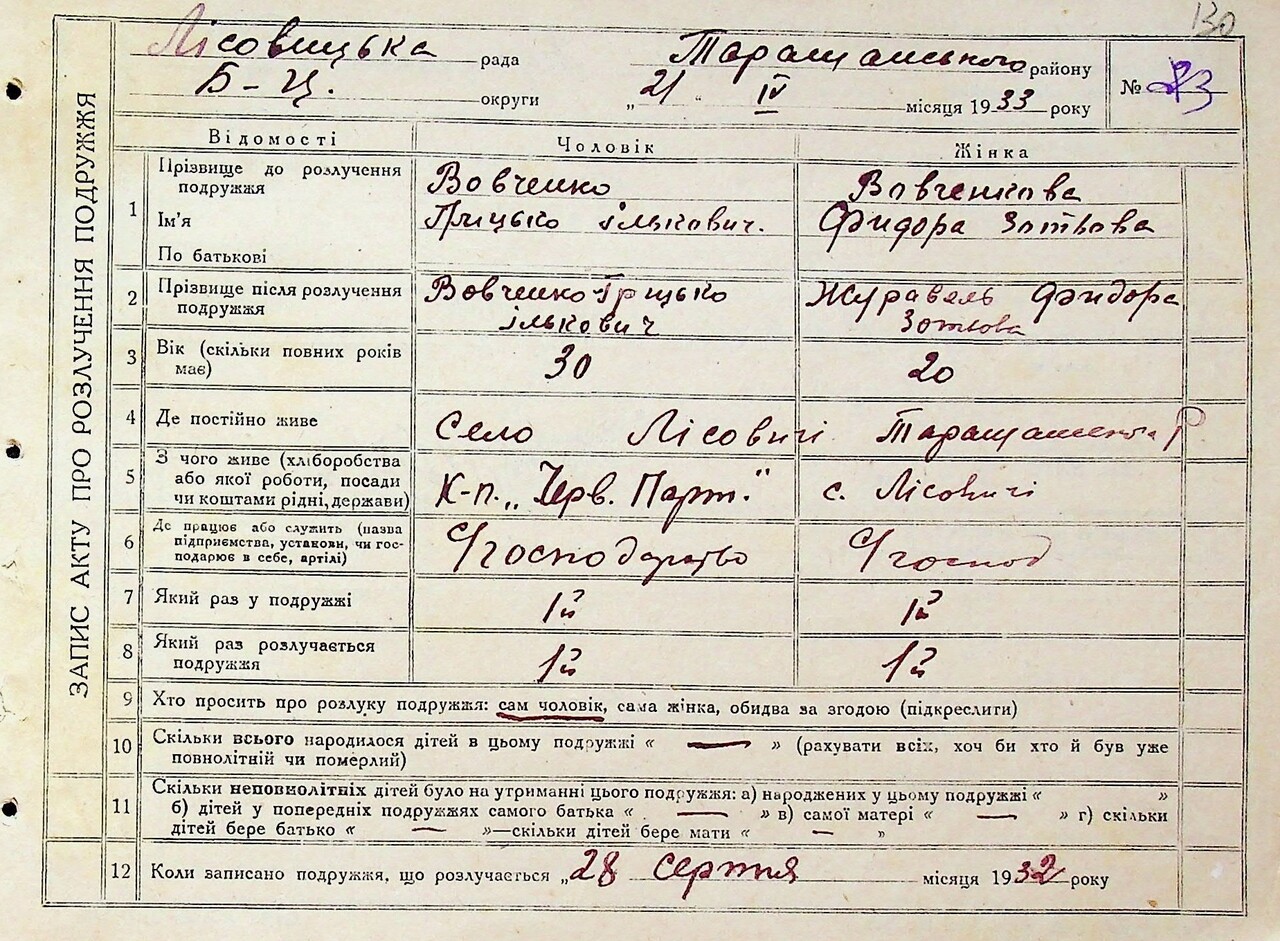 130
Лісовицька рада Таращанського району
Б-Ц. округи „ 21 “ IV місяця 1933 року № 23
ЗАПИС АКТУ ПРО РОЗЛУЧЕННЯ ПОДРУЖЖЯ
Відомості Чоловік Жінка
1 Прізвище до розлучення подружжя Вовченко Вовченкова
Ім'я Грицько ількович. Фидора Зотьова
По батькові
2 Прізвище після розлучення подружжя Вовченко Грицько Журавель Фидора
ількович Зотьова
3 Вік (скільки повних років має) 30 20
4 Де постійно живе Село Лісовичі Таращанського Р
5 З чого живе (хліборобства або якої роботи, посади чи коштами рідні, держави) К-п. „Черв. Парт." с. Лісовичі
6 Де працює або служить (назва підприємства, установи, чи господарює в себе, артілі) С/господарство С/господ
7 Який раз у подружжі 1й 1й
8 Який раз розлучається подружжя 1й 1й
9 Хто просить про розлуку подружжя: сам чоловік, сама жінка, обидва за згодою (підкреслити)
10 Скільки всього народилося дітей в цьому подружжі « — » (рахувати всіх, хоч би хто й був уже
повнолітній чи померлий)
11 Скільки неповнолітніх дітей було на утриманні цього подружжя: а) народжених у цьому подружжі « »
б) дітей у попередніх подружжях самого батька « — » в) самої матері « — » г) скільки
дітей бере батько « — »—скільки дітей бере мати « — »
12 Коли записано подружжя, що розлучається „28 серпня місяця 1932 року